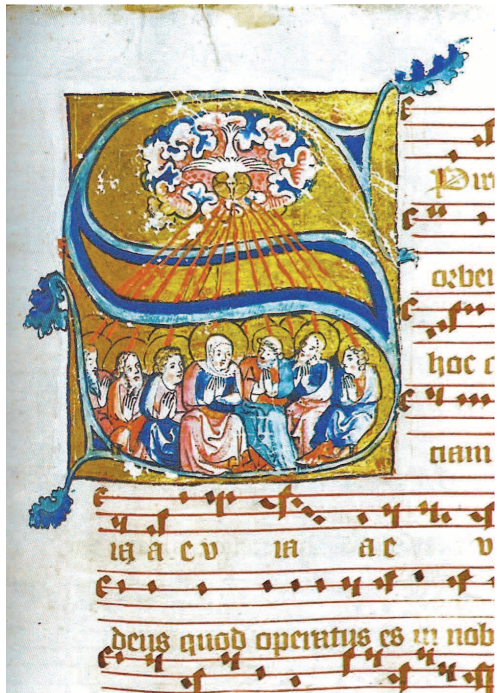 SPiri
orbe
hoc
tiam
ia a e v ia a e v
deus quod operatus es in nob